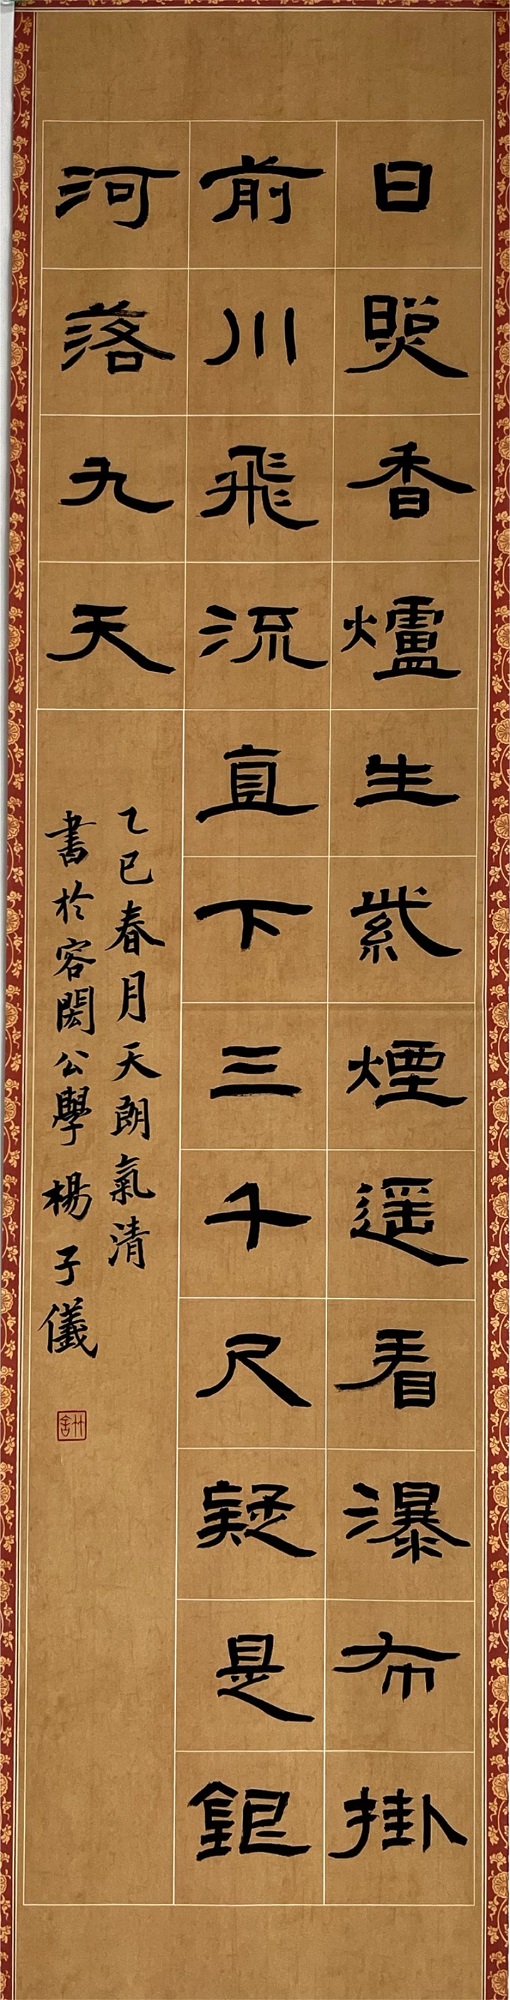 日照香爐生紫煙遥看瀑布掛
前川飛流直下三千尺疑是銀
河落九天
乙巳春月天朗氣清
書於容閎公學楊子儀
竹舍